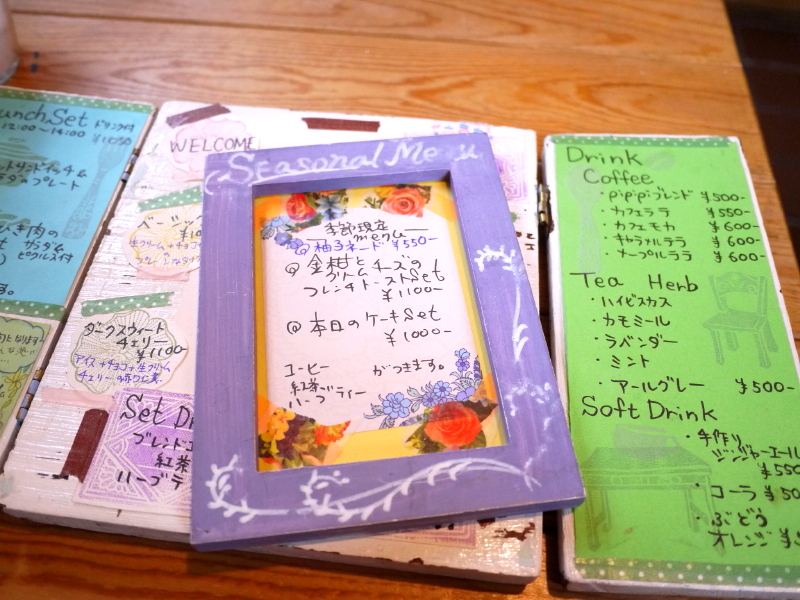 unch Set ドリンク付
12:00〜14:00 ¥1050
プレート
ひき肉の
ピクルス付
WELCOME
ダークスウィート
チェリー
¥1100
アイス+チョコ+生クリーム
Set D
ブレンドコ
紅茶
ハーブテ
Seasonal Menu
季節限定
menu
柚子ネード ¥550-
@金柑と
クリームチーズの
フレンチトーストSet
¥1100-
@本日のケーキSet
¥1000-
コーヒー
紅茶 がつきます。
ハーブティー
Drink
Coffee
・pipipiブレンド ¥500-
・カフェララ ¥550-
・カフェモカ ¥600-
・キャラメルララ ¥600-
・メープルララ ¥600-
Tea Herb
・ハイビスカス
・カモミール
・ラベンダー
・ミント
・アールグレー ¥500-
Soft Drink
・手作り
ジンジャーエール
¥550
・コーラ ¥50
・ぶどう
オレンジ ¥